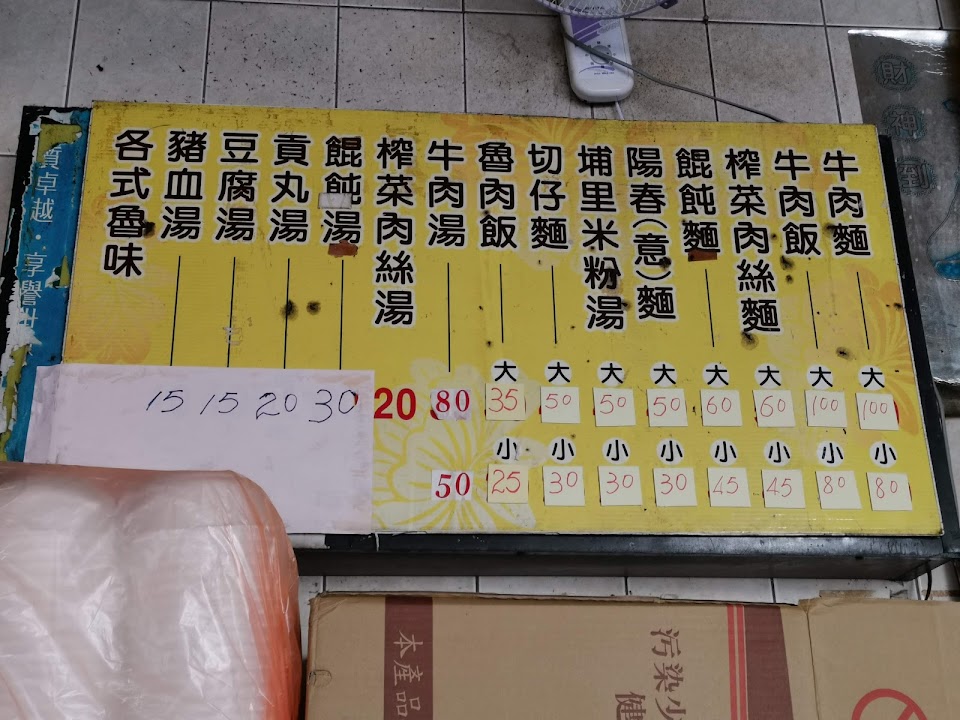 財神到
牛肉麵 大 100 小 80
牛肉飯 大 100 小 80
榨菜肉絲麵 大 60 小 45
餛飩麵 大 60 小 45
陽春(意)麵 大 50 小 30
埔里米粉湯 大 50 小 30
切仔麵 大 50 小 30
魯肉飯 大 35 小 25
牛肉湯 80 50
榨菜肉絲湯 20
餛飩湯 30
貢丸湯 20
豆腐湯 15
豬血湯 15
各式魯味
卓越・享譽
污染少
本產品